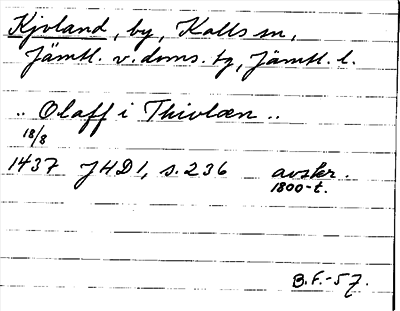 Kjoland, by, Kalls sn,
Jämtl. v. doms. tg, Jämtl. l.
.. Olaff i Thiolæn ..
18/8
1437 JHD1, s. 236 avskr.
1800-t.
B.F.-57.